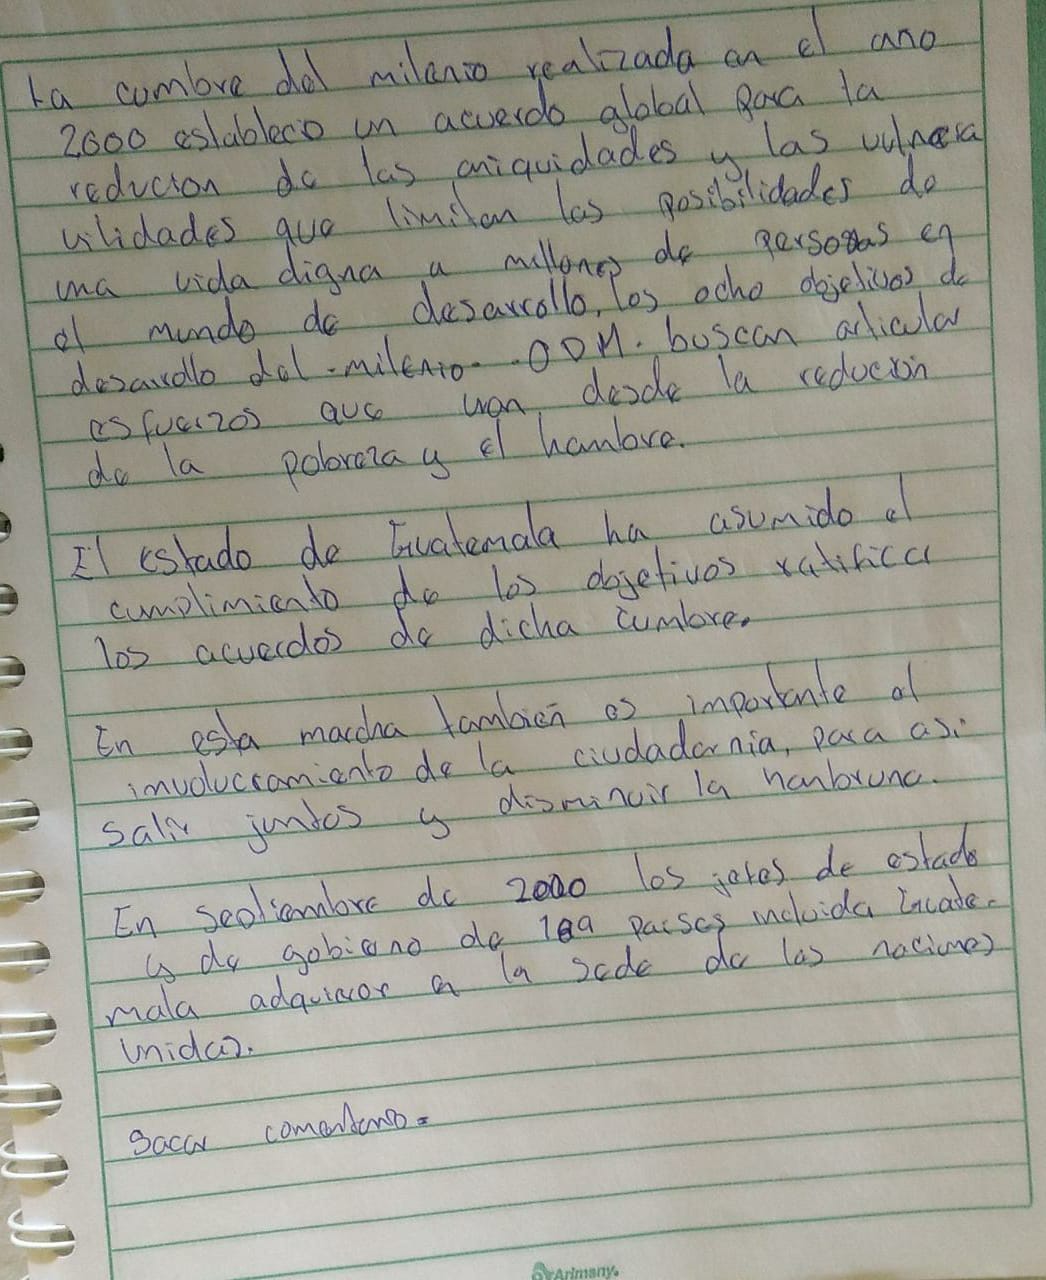 La cumbre del milenio realizada en el ano
2000 establecio un acuerdo global para la
reducion de las iniquidades y las vulnera
vilidades que limitan las posibilidades de
una vida digna a millones de personas en
el mundo de desarrollo, los ocho objetivos de
desarrollo del - milenio - ODM. buscan articular
esfuerzos que van, desde la reducción
de la pobreza y el hambre.
El estado de Guatemala ha asumido el
cumplimiento de los objetivos ratifica
los acuerdos de dicha cumbre.
En esta marcha tambien es importante el
involucramiento de la ciudadarnia, para asi
salir juntos y disminuir la hanbruna.
En Septiembre de 2000 los jefes de estado
y de gobierno de 189 paises incluida Guate-
mala a la sede de las naciones
unidas.
Sacar comentario =
Arimany